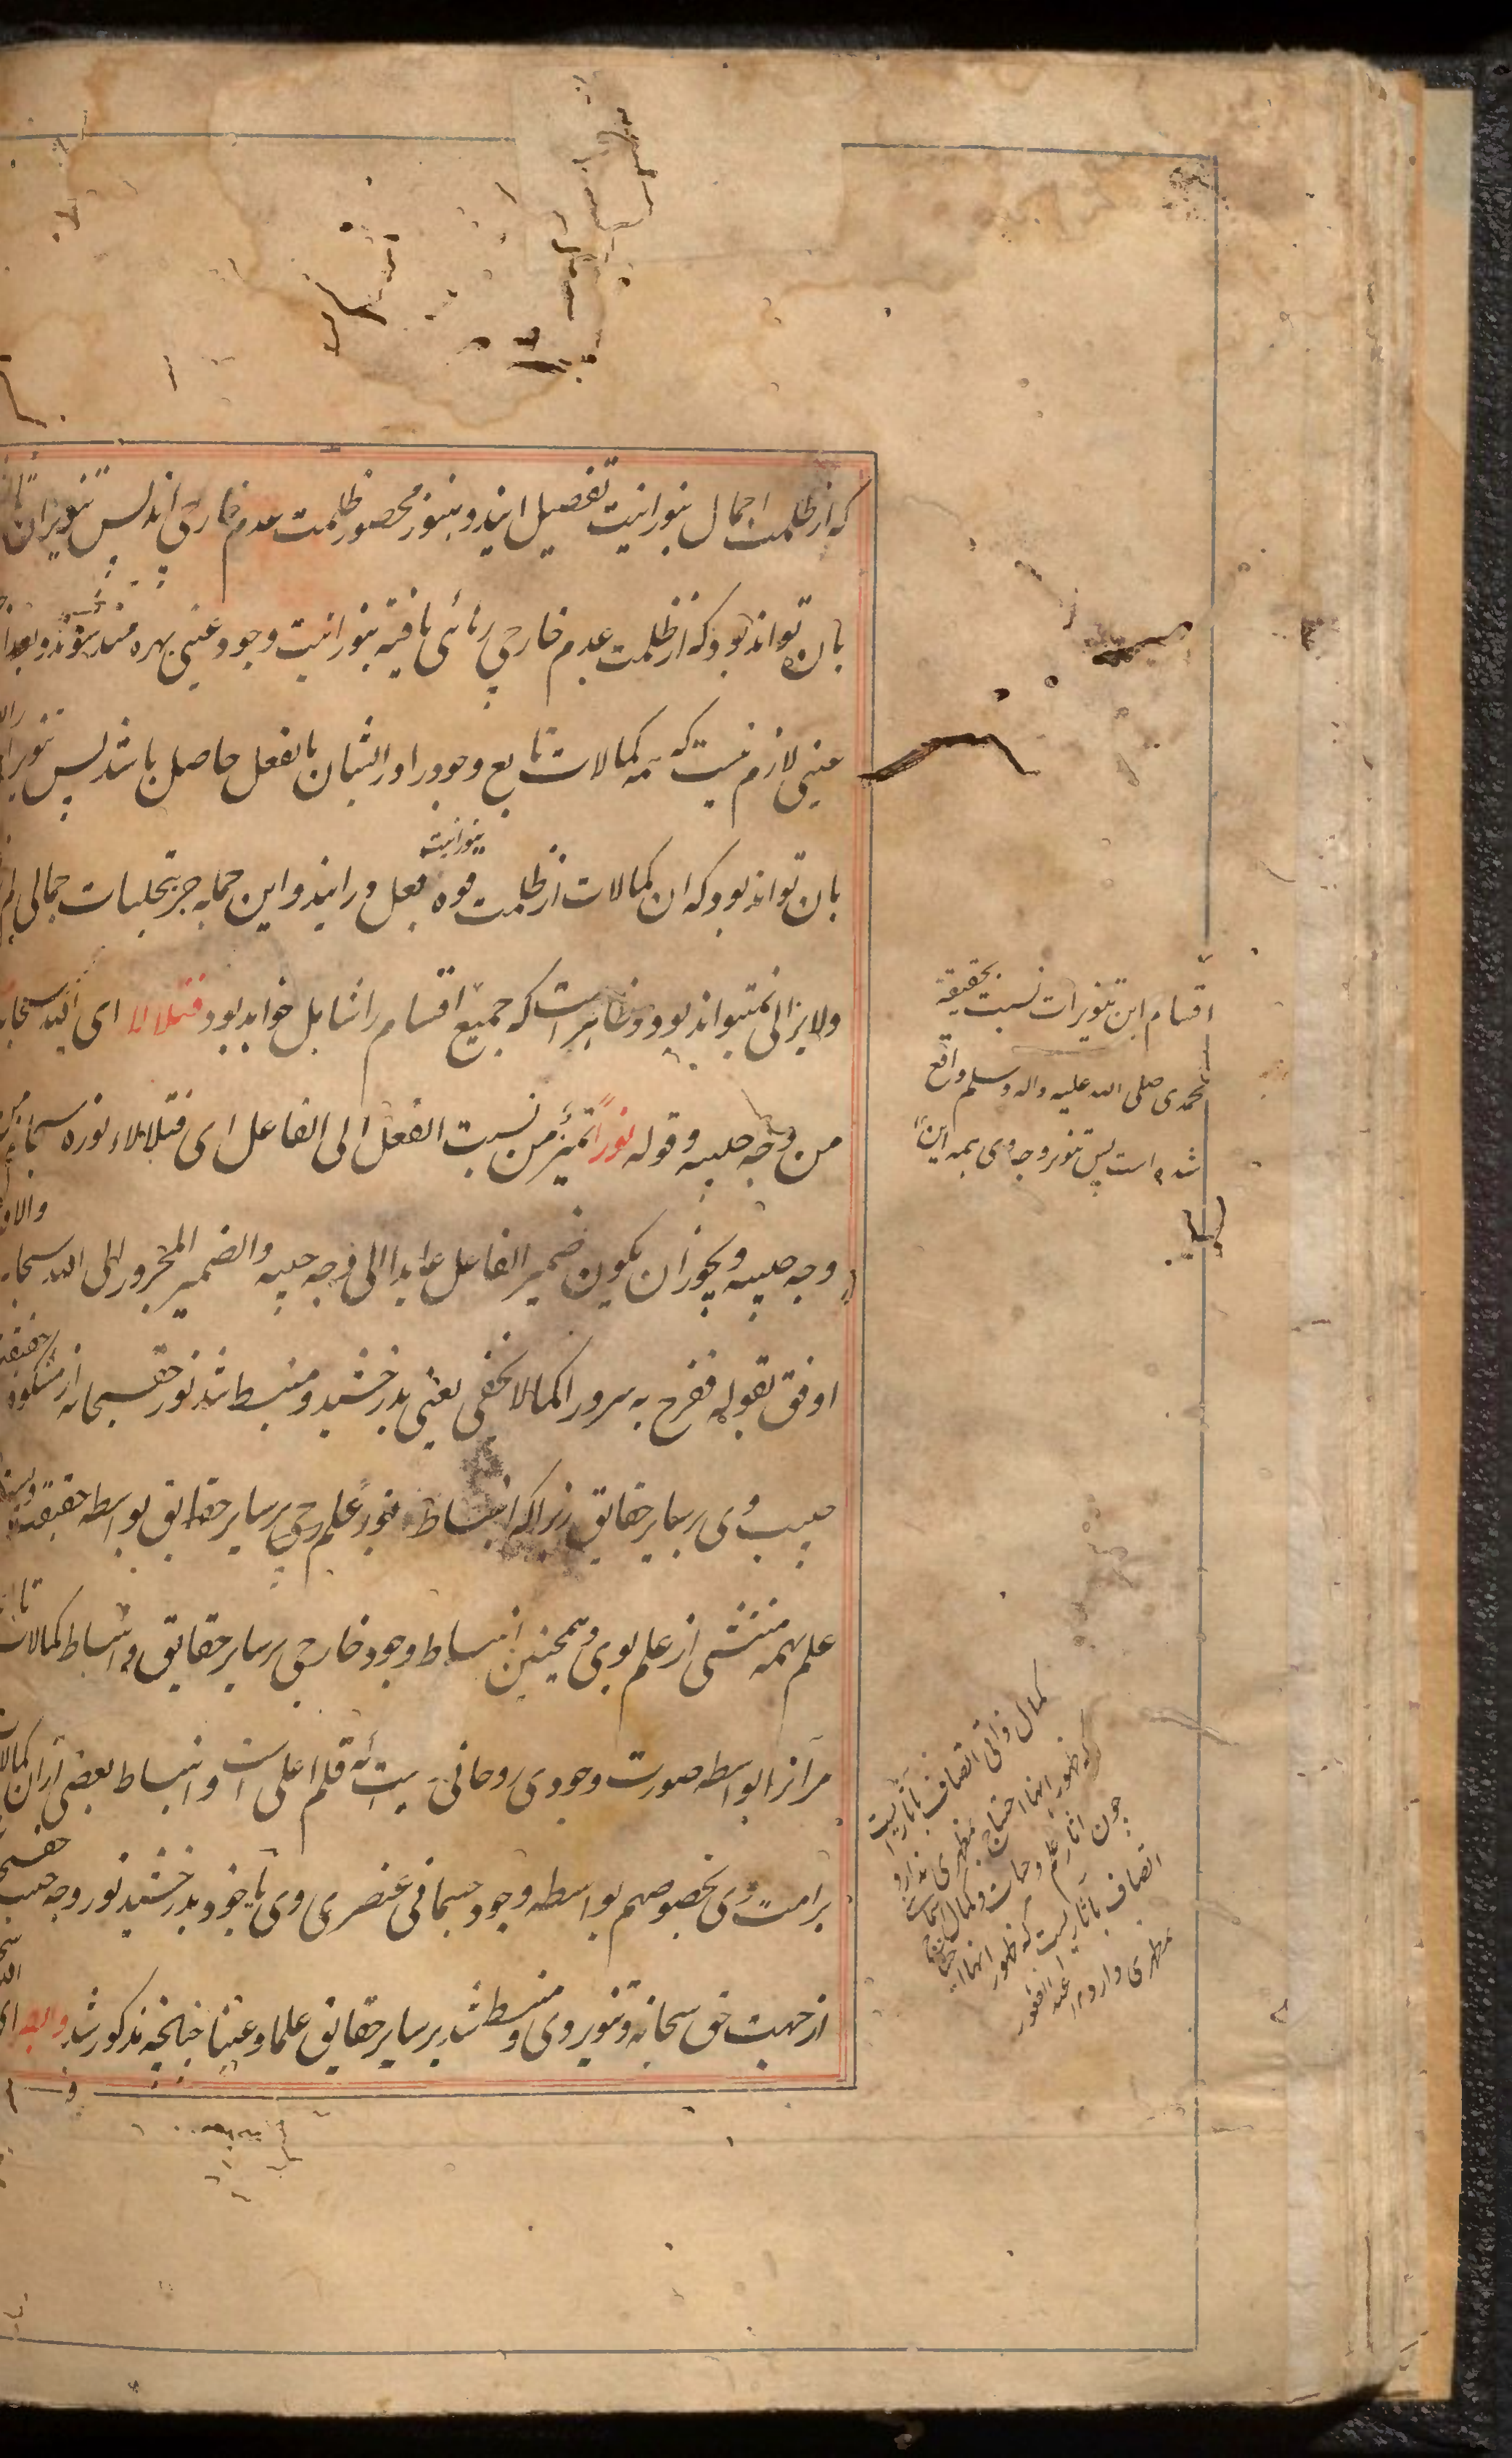 که از ظلمت اجمال بنورانیت تفصیل ایند و هنوز محصور ظلمت عدم خارجی اند پس تنویر ان
بان تواند بود که از ظلمت عدم خارجی رهائی یافته بنورانیت وجود عینی بهره مند شوند و بعد از
عینی لازم نیست که همه کمالات تابع وجود را در ایشان بالفعل حاصل باشد پس تنویر
بان تواند بود که ان کمالات از ظلمت قوه بنورانیت فعل در ایند و این جمله جز بتجلیات جمالی
ولایزالی نمیتواند بود و ظاهر است که جمیع اقسام را شامل خواهد بود فتلالا ای الله سبحانه
من وجه حبیبه و قوله نوراً تمیز من نسبت الفعل الی الفاعل ای فتلالاء نوره سبحانه من
وجه حبیبه و یجوز ان یکون ضمیر الفاعل عایدا الی وجه حبیبه والضمیر المجرور الی الله سبحانه
اوفق بقوله ففرح به سرورا کما لا یخفی یعنی بدرخشید و منبسط شد نور حق سبحانه از مشکوة
حبیب وی بر سایر حقایق زیرا که انبساط نور علم وی بر سایر حقایق بواسطه حقیقت
علم همه منتشی از علم بوی و همچنین انبساط وجود خارجی بر سایر حقایق و انبساط کمالات
مر انرا بواسطه صورت وجودی روحانی ویست که قلم اعلی است و انبساط بعضی از ان کمالات
بر امت وی بخصوصهم بواسطه وجود جسمانی عنصری وی یا خود بدرخشید نور وجه حبیب
از جهت حق سبحانه و تنویر وی و منبسط شد بر سایر حقایق علما و عینا چنانچه مذکور شد
اقسام این تنویرات نسبت بحقیقة
محمدی صلی الله علیه واله وسلم واقع
شده است پس تنویر وجه وی همه این
کمال ذاتی اتصاف باثاریست
که ظهور انها احتیاج بمظهری ندارد
چون اثار علم و حیات و کمال اسمائی
اتصاف باثاریست که ظهور انها احتیاج
مظهری دارد عبد الغفور